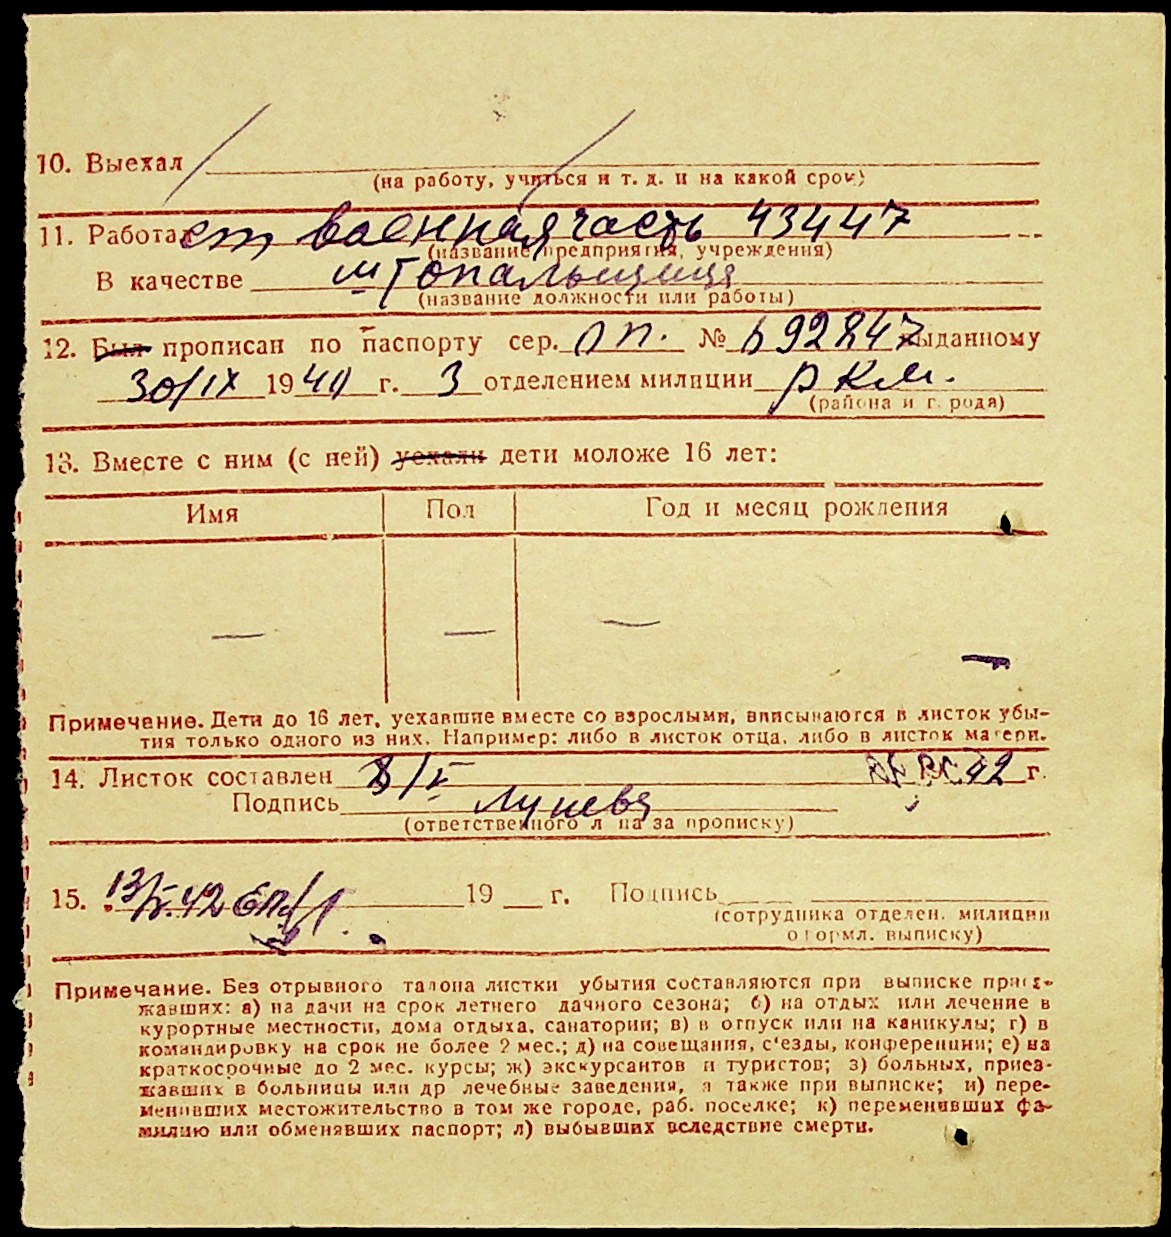 10. Выехал
(на работу, учиться и т. д. и на какой срок)
11. Работает военная часть 43447
(название предприятия, учреждения)
В качестве штопальщица
(название должности или работы)
12. Был прописан по паспорту сер. ОП. № 692847 выданному
30/IX 1940 г. 3 отделением милиции РКМ.
(района и города)
13. Вместе с ним (с ней) уехали дети моложе 16 лет:
Имя Пол Год и месяц рождения
— — —
Примечание. Дети до 16 лет, уехавшие вместе со взрослыми, вписываются в листок убы-
тия только одного из них. Например: либо в листок отца, либо в листок матери.
14. Листок составлен 8/V 42 г.
Подпись
(ответственного лица за прописку)
15. 13/V.42 19 г. Подпись
(сотрудника отделен. милиции
оформл. выписку)
Примечание. Без отрывного талона листки убытия составляются при выписке приез-
жавших: а) на дачи на срок летнего дачного сезона; б) на отдых или лечение в
курортные местности, дома отдыха, санатории; в) в отпуск или на каникулы; г) в
командировку на срок не более 2 мес.; д) на совещания, с'езды, конференции; е) на
краткосрочные до 2 мес. курсы; ж) экскурсантов и туристов; з) больных, приез-
жавших в больницы или др лечебные заведения, а также при выписке; и) пере-
менивших местожительство в том же городе, раб. поселке; к) переменивших фа-
милию или обменявших паспорт; л) выбывших вследствие смерти.